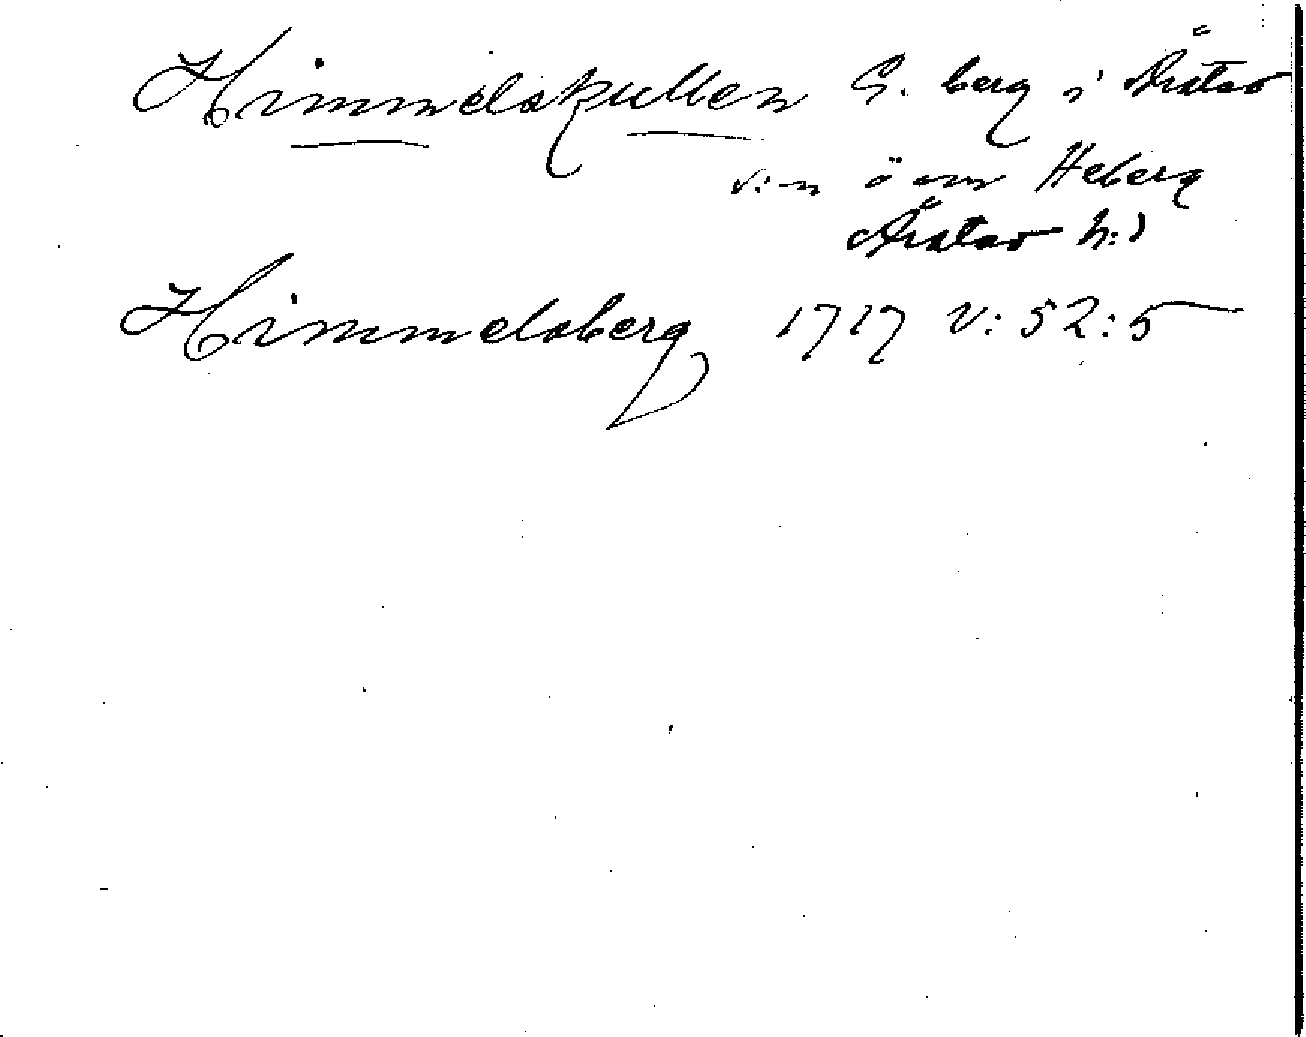 Himmelskullen G. berg i Årstad
v:n ö om Heberg
Årstad h:d
Himmelsberg 1717 V: 52: 5